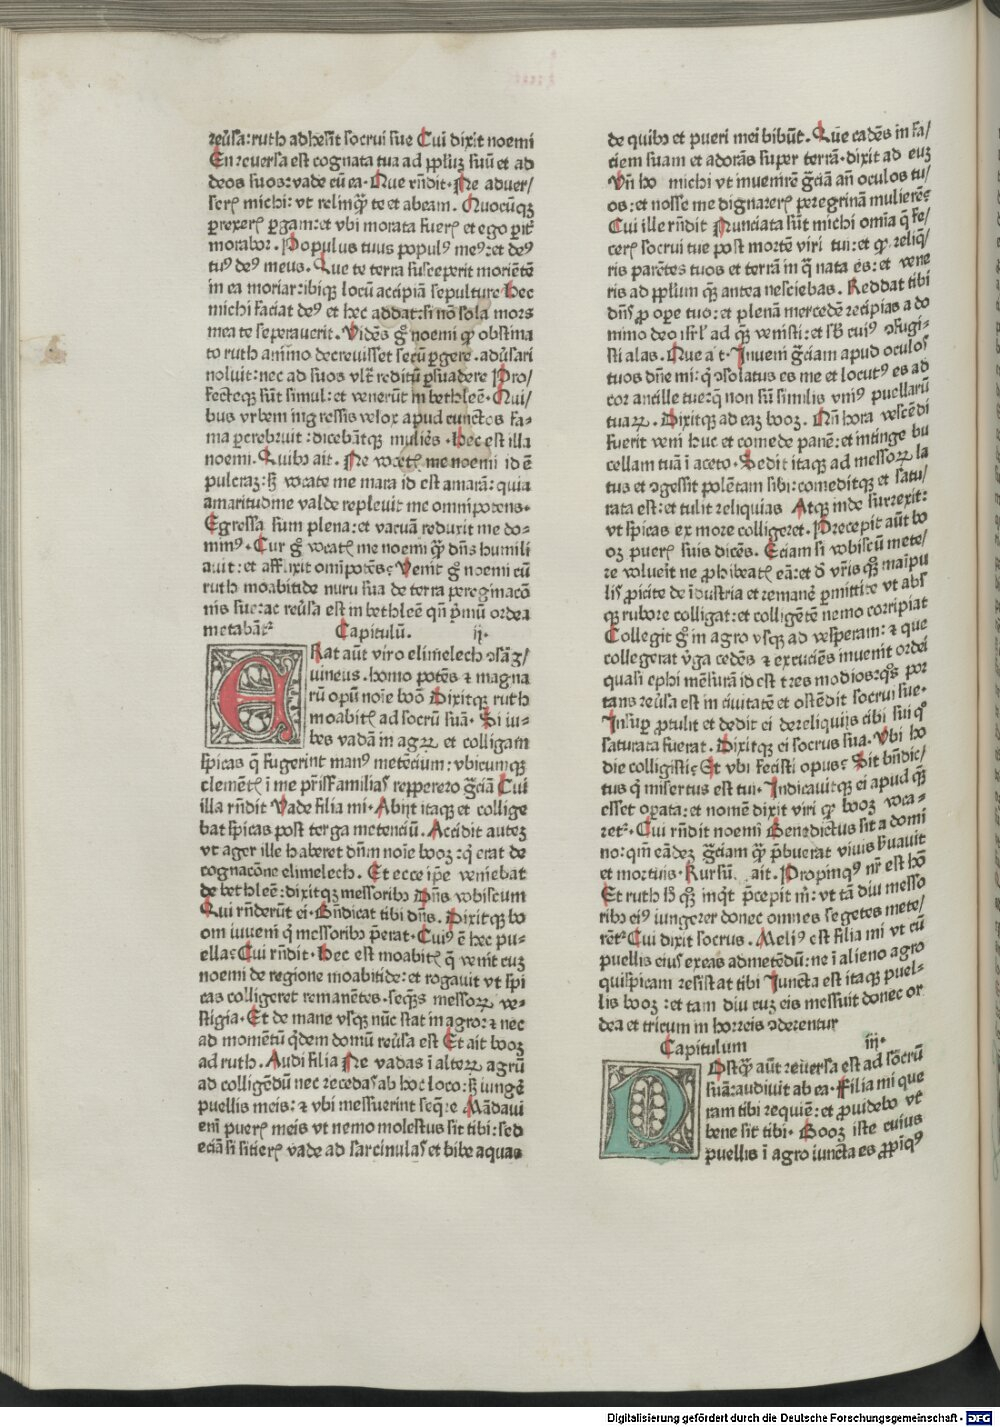 reũsa: ruth adhesit socrui sue Cui dixit noemi
En reuersa est cognata tua ad pplũʒ suũ et ad
deos suos: vade cũ ea. Que rñdit. Ne aduer/
seris michi: vt relinqͣ te et abeam. Quocũqʒ
prexeris pgam: et vbi morata fueris et ego pit̃
morabor. Populus tuus populꝰ meꝰ: et deꝰ
tuꝰ deꝰ meus. Que te terra susceperit moriẽtẽ
in ea moriar: ibiqʒ locũ accipiã sepulture hec
michi faciat deꝰ et hec addat: si nõ sola mors
mea te seperauerit. Vidẽs gͦ noemi qͥ obstina
to ruth animo decreuisset secũ pgere. adũsari
noluit: nec ad suos vlt̃ reditũ psuadere Pro/
fecteqʒ sũt simul: et venerũt in bethleẽ. Qui/
bus vrbem ingressis velox apud cunctos fa-
ma percrebruit: dicebãtqʒ mulieres. hec est illa
noemi. Quibꝰ ait. Ne vocetis me noemi id ẽ
pulcraʒ: sʒ vocate me mara id est amarã: quia
amaritudine valde repleuit me omnipotens.
Egressa sum plena: et vacuã reduxit me do-
minꝰ. Cur gͦ vocatis me noemi qͣ dñs humili
auit: et afflixit omnipotẽs? Venit gͦ noemi cũ
ruth moabitide nuru sua de terra peregrinacõ
nis sue: ac reũsa est in bethleẽ qñ pͥmũ ordea
metabãt̃
Capitulũ. ij.
ERat aũt viro elimelech ꝯsãg/
uineus. homo potẽs ⁊ magna
rũ opũ noĩe booʒ Dixitqʒ ruth
moabitis ad socrũ suã. Si iu-
bes vadã in agrꝝ et colligam
spicas q̃ fugerint manꝰ metẽcium: vbicumqʒ
clemẽtis ĩ me pr̃isfamilias reppereo gr̃ciã Cui
illa rñdit Vade filia mi. Abijt itaqʒ et collige
bat spicas post terga metenciũ. Accidit auteʒ
vt ager ille haberet dñm noĩe booʒ: qͥ erat de
cognacõne elimelech. Et ecce ip̃e veniebat
de bethleẽ: dixitqʒ messoribꝰ Dñs vobiscum
Qui rñderũt ei. Bñdicat tibi dñs. Dixitqʒ bo
oʒ iuueni qͥ messoribꝰ pͥerat. Cuiꝰ ẽ hec pu-
ella? Cui rñdit. Hec est moabitis q̃ venit cuʒ
noemi de regione moabitide: et rogauit vt spi
cas colligeret remanẽtes. seqͣ̃s messorꝝ ve-
stigia. Et de mane vsqʒ nũc stat in agro: ⁊ nec
ad momẽtũ qͥdem domũ reũsa est Et ait booʒ
ad ruth. Audi filia Ne vadas ĩ alterꝝ agrũ
ad colligẽdũ nec recedas ab hoc loco: sʒ iungeͣ
puellis meis: ⁊ vbi messuerint seqͣ̃re Mãdaui
enĩ pueris meis vt nemo molestus sit tibi: sed
eciã si sitieris vade ad sarcinulas et bibe aquas
de quibꝰ et pueri mei bibũt. Que cadẽs in fa/
ciem suam et adorãs super terrã. dixit ad euʒ
Vñ ho michi vt inuenirẽ gr̃ciã añ oculos tu/
os: et nosse me dignareris peregrinã mulierẽ?
Cui ille rñdit Nunciata sũt michi omĩa q̃ fe/
ceris socrui tue post mortẽ viri tui: et qͥ reliq̃/
ris parẽtes tuos et terrã in qͣ nata es: et vene
ris ad pplum qͣ̃ antea nesciebas. Reddat tibi
dñs p ope tuo: et plenã mercedẽ recipias a do
mino deo isrl̃ ad qͣ̃ venisti: et sb̃ cuiꝰ ꝯfugi-
sti alas. Que a t. Inueni gr̃ciam apud oculos
tuos dñe mi: qͥ ꝯsolatus es me et locutꝰ es ad
cor ancille tue: q̃ non sũ similis vniꝰ puellarũ
tuarꝝ. Dixitqʒ ad eaʒ booʒ. Qñ hora vescẽdi
fuerit veni huc et comede panẽ: et intinge bu
cellam tuã ĩ aceto. Sedit itaqʒ ad messorꝝ la
tus et ꝯgessit polẽtam sibi: comeditqʒ et satu/
rata est: et tulit reliquias Atqʒ inde surrexit:
vt spicas ex more colligeret. Precepit aũt bo
oʒ pueris suis dicẽs. Eciam si vobiscũ mete/
re voluerit ne prohibeatis eã: et d̃ vr̃is qͦqʒ maĩpu
lis proicite de ĩdustria et remaneͤ pmittite vt abs
qʒ rubore colligat: et colligẽtẽ nemo corripiat
Collegit gͦ in agro vsqʒ ad vesperam: ⁊ que
collegerat vͥga cedẽs ⁊ excuciẽs inuenit ordei
quasi ephi mẽsurã id est tres modios: qͦs por
tans reũsa est in ciuitatẽ et ostẽdit socrui sue.
Insup ꝓtulit et dedit ei de reliquijs cibi sui qͦ
saturata fuerat. Dixitqʒ ei socrus sua. Vbi ho
die collegisti? Et vbi fecisti opus? Sit bñdic/
tus qͥ misertus est tui. Indicauitqʒ ei apud qͣ̃
esset opata: et nomẽ dixit viri qͥ booʒ voca-
ret̃. Cui rñdit noemi Benedictus sit a domi
no: qm̃ eãdeʒ gr̃ciam qͣ̃ pͥbuerat viuis seruauit
et mortuis. Rursũ ait. Propinqͣꝰ nr̃ est hõ
Et ruth hͦ qʒ inqͥt pͥcepit mͥ: vt tã diu messo
ribꝰ eiꝰ iungerer donec omnes segetes mete/
rẽt̃ Cui dixit socrus. Meliꝰ est filia mi vt cũ
puellis eius exeas ad metẽdũ: ne ĩ alieno agro
quispicam resistat tibi Iuncta est itaqʒ puel-
lis booʒ: et tam diu cuʒ eis messuit donec or
dea et tricum in horreis ꝯderentur
Capitulum iij.
POstqͣ̃ aũt reuersa est ad socrũ
suã: audiuit ab ea. Filia mi que
ram tibi requiẽ: et ꝓuidebo vt
bene sit tibi. Booʒ iste cuius
puellis ĩ agro iuncta es ꝓpĩqꝰ
Digitalisierung gefördert durch die Deutsche Forschungsgemeinschaft - DFG